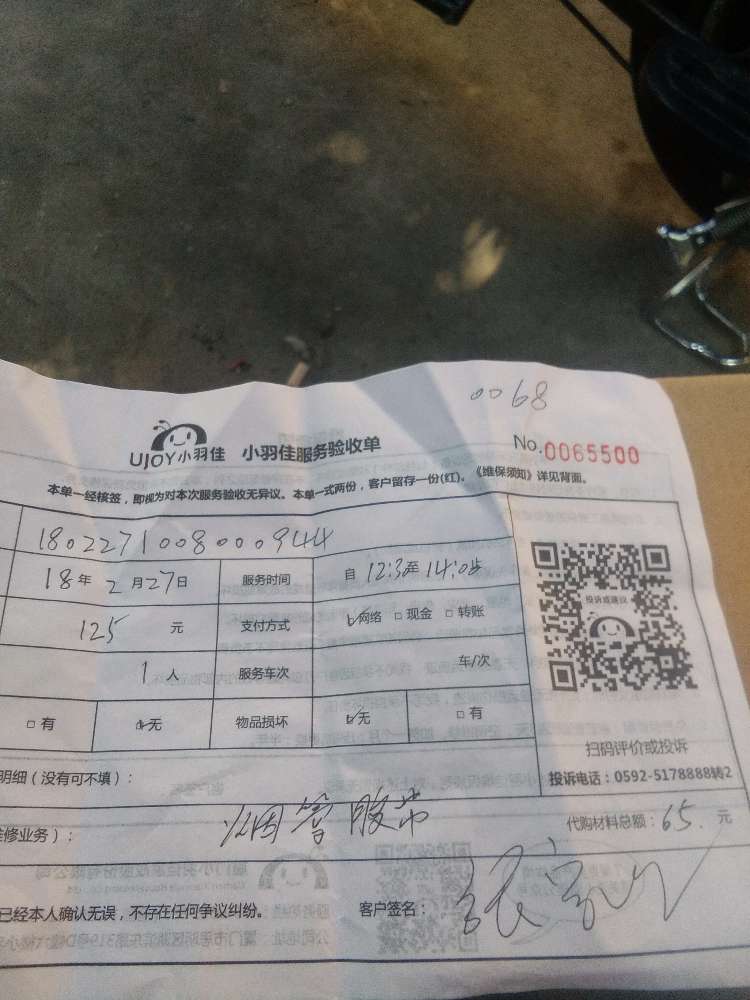 0068
UJOY小羽佳 小羽佳服务验收单 No.0065500
本单一经核签，即视为对本次服务验收无异议。本单一式两份，客户留存一份(红)。《维保须知》详见背面。
1802271008000944
18年 2月27日 服务时间 自 12:3至14:05
125 元 支付方式 网络 □现金 □转账
投诉或建议
1人 服务车次 车/次
□有 无 物品损坏 无 □有
扫码评价或投诉
明细（没有可不填）： 投诉电话：0592-5178888转2
维修业务）： 烟管胶带 代购材料总额：65.元
已经本人确认无误，不存在任何争议纠纷。 客户签名：